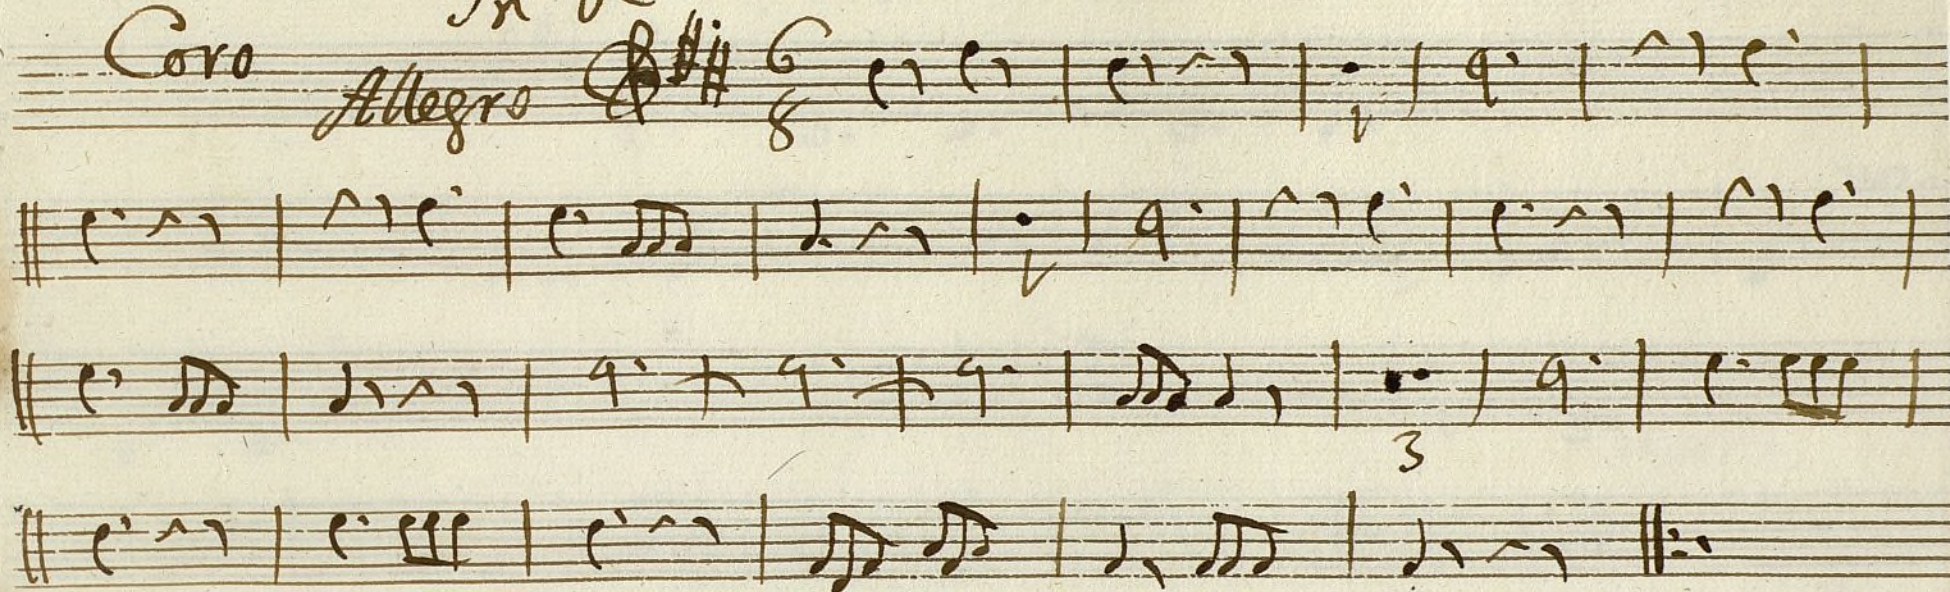 Coro
Allegro
6
8
3